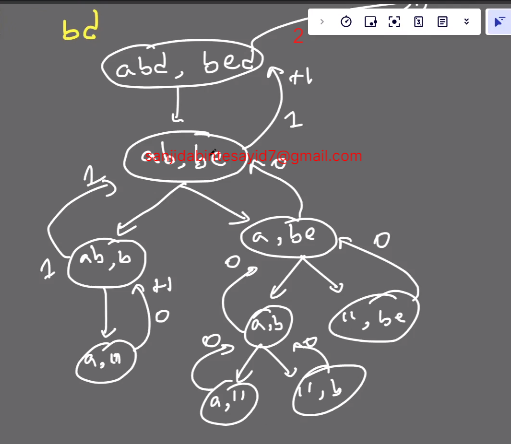 bd
2
abd, bed
+1
1
ab, be
sanjidabintesayid7@gmail.com
0
1
a, be
0
ab, b
1
+1
0
0
a, b
", be
0
0
a, "
a, "
", b